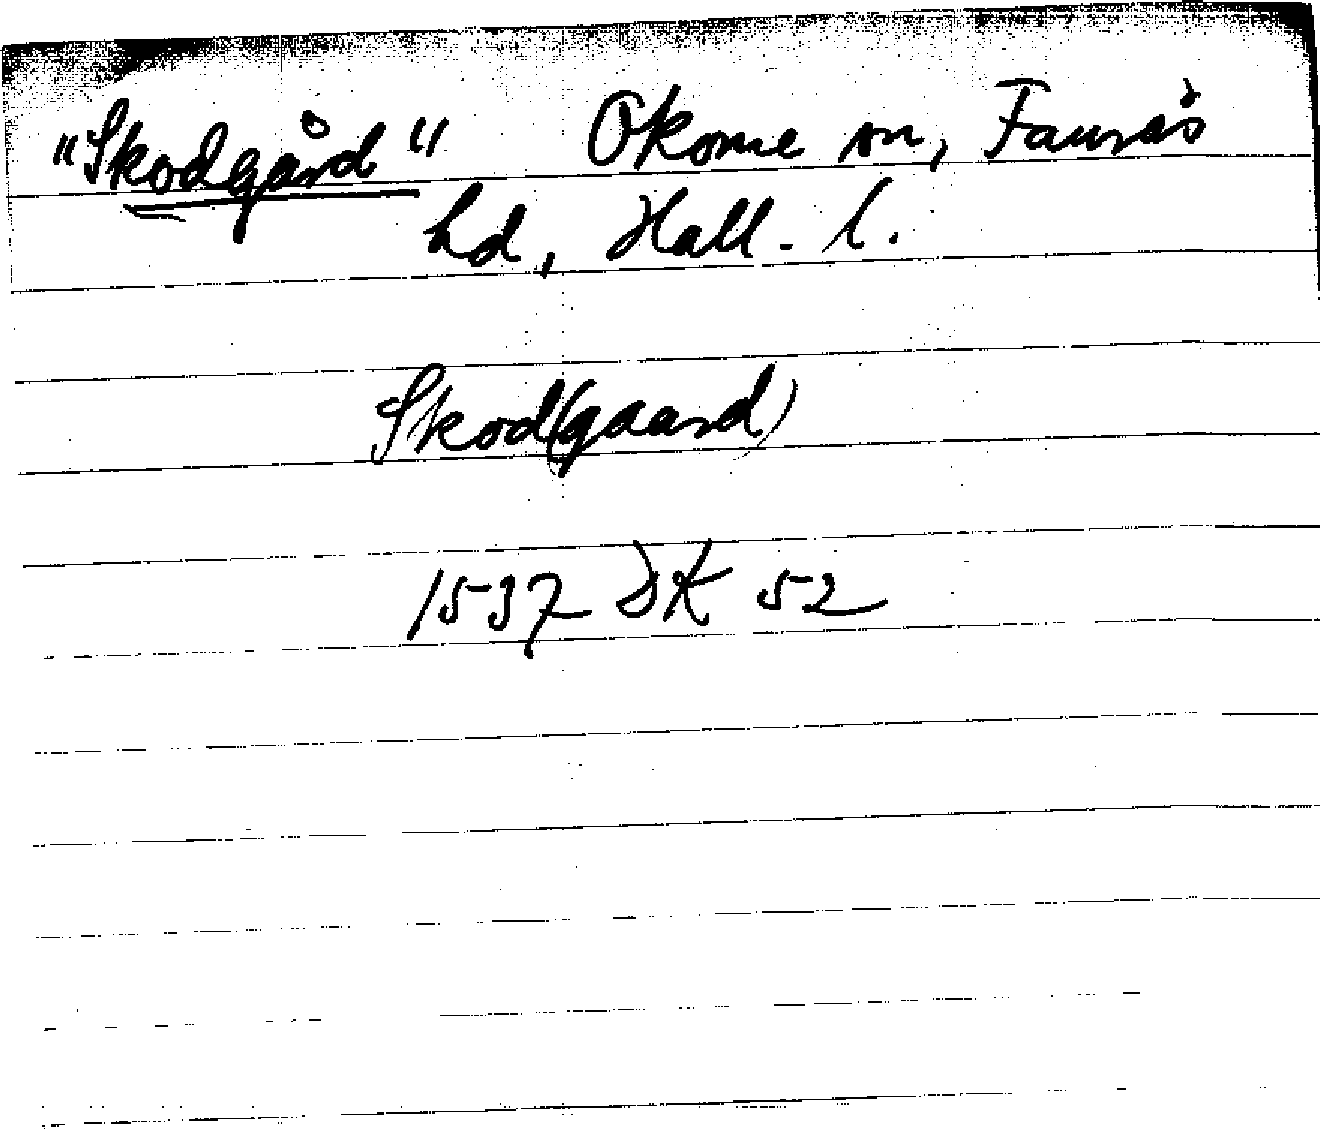 "Skodgård" Okome sn, Faurås
hd, Hall. l.
Skod(gaard)
1537 DK 52